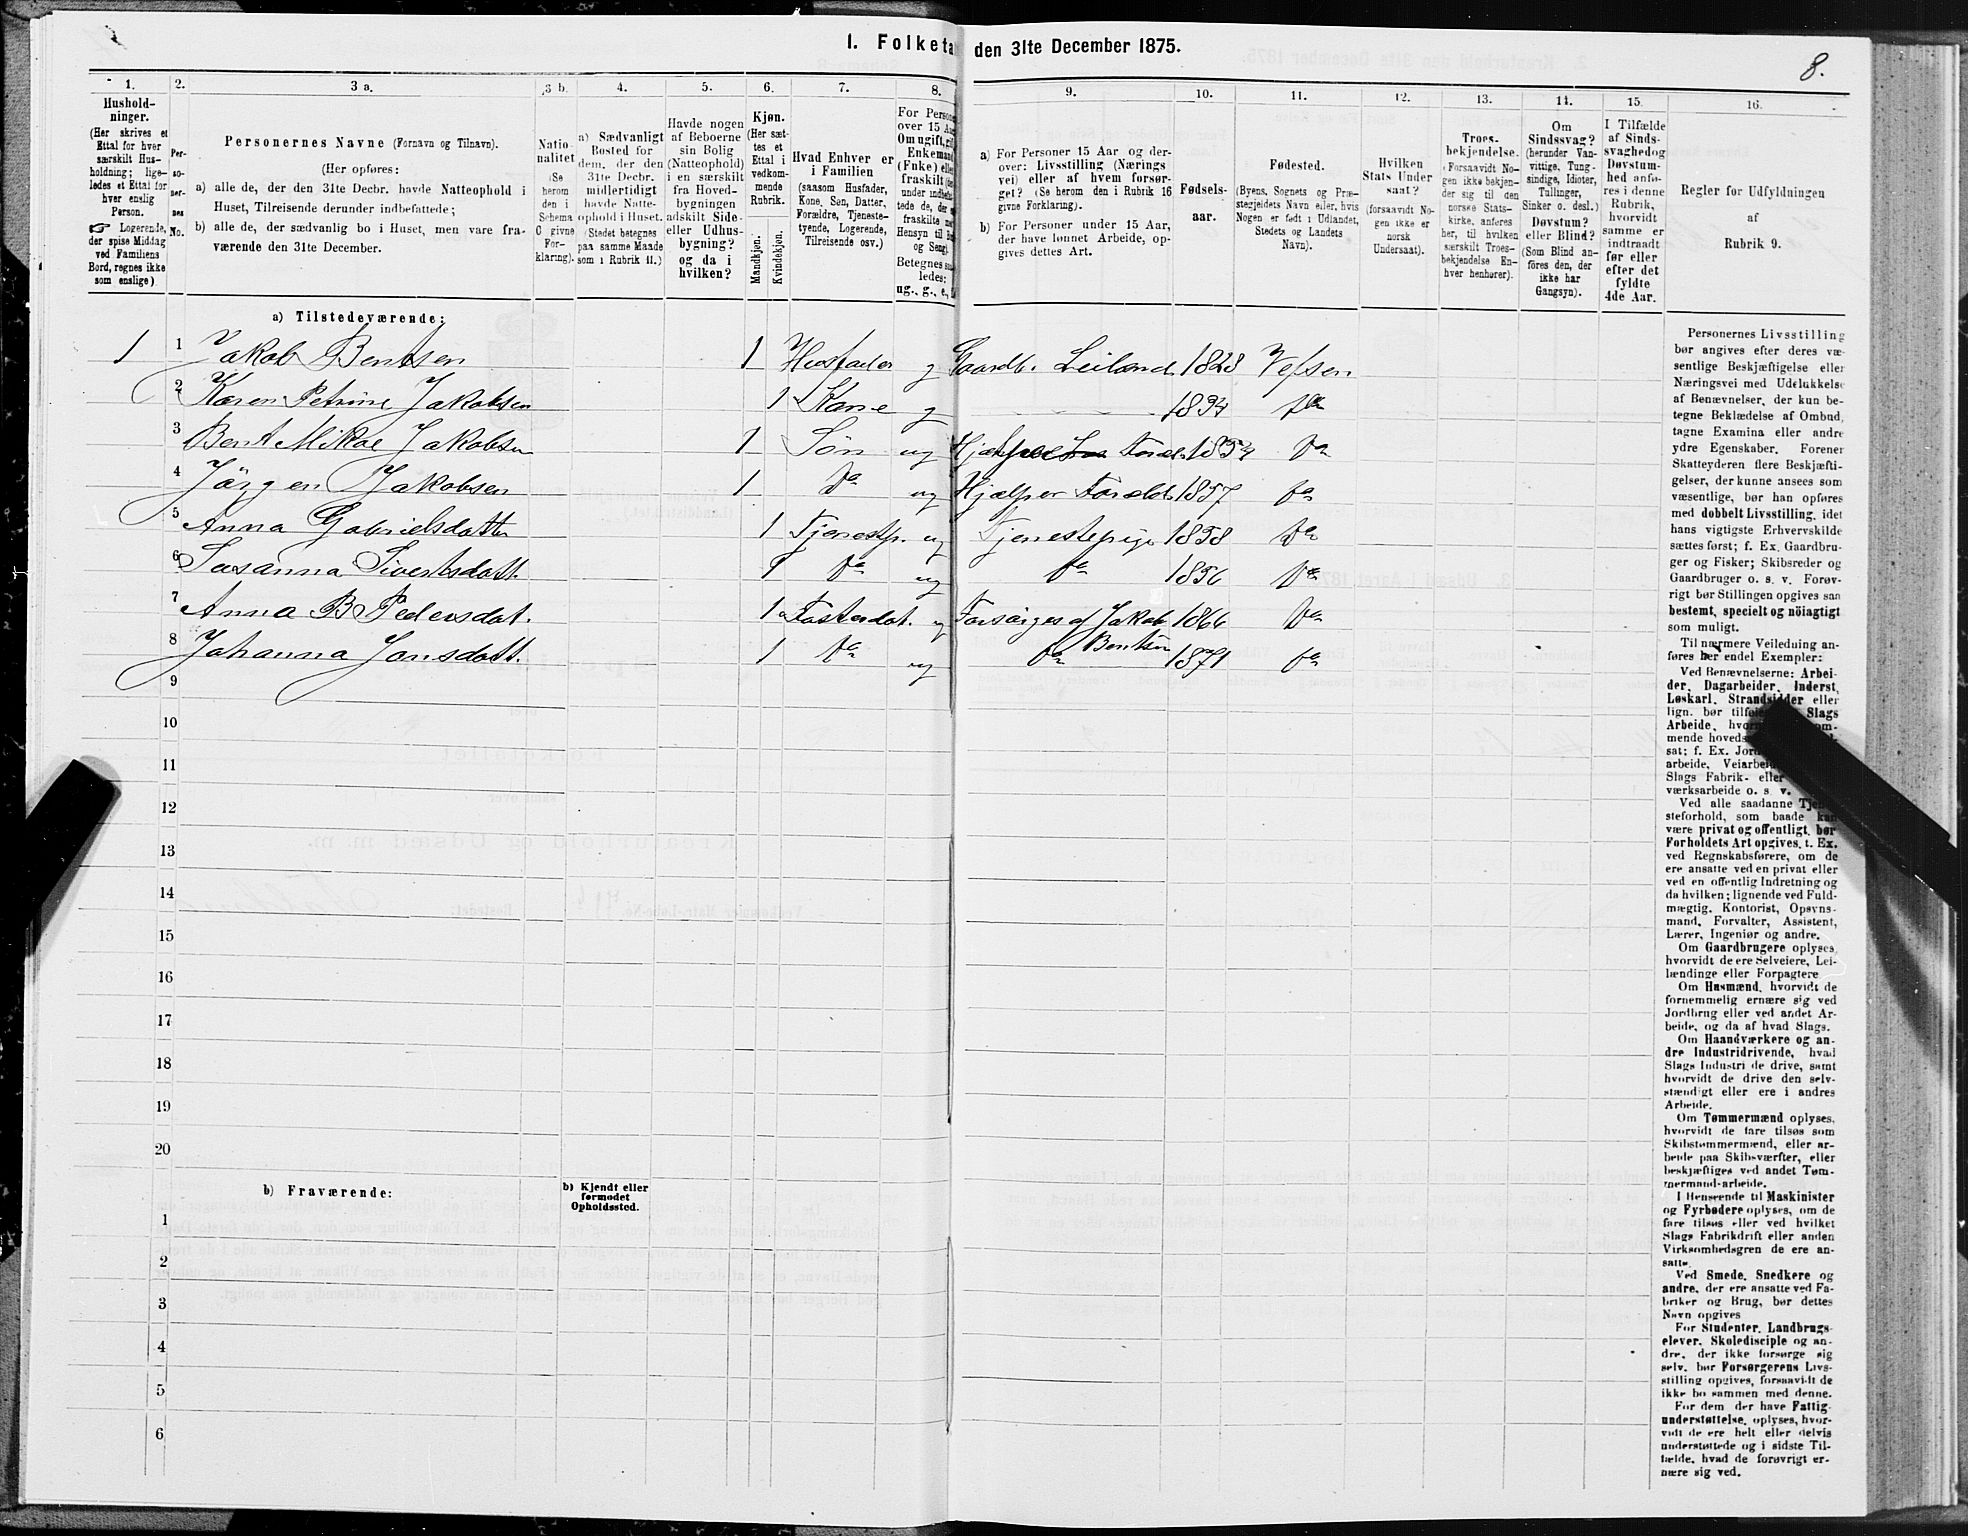 1. Folketæ den 31te December 1875.
8.
1. 2. 3 a. 3 b. 4. 5. 6. 7. 8. 9. 10. 11. 12. 13. 14. 15. 16.
Hushold-
ninger.
(Her skrives et
Ettal for hver
særskilt Hus-
holdning; lige-
ledes et Ettal for
hver enslig
Person.
☞ Logerende,
der spise Middag
ved Familiens
Bord, regnes ikke
som enslige)
Per-
so-
ner-
nes
No.
Personernes Navne (Fornavn og Tilnavn).
(Her opføres:
a) alle de, der den 31te Decbr. havde Natteophold i
Huset, Tilreisende derunder indbefattede;
b) alle de, der sædvanlig bo i Huset, men vare fra-
værende den 31te December.
Natio-
nalitet
(Se
herom
den i
Schema
C givne
For-
klaring).
a) Sædvanligt
Bosted for
dem, der den
31te Decbr.
midlertidigt
havde Natte-
ophold i Huset.
(Stedet betegnes
paa samme Maade
som i Rubrik 11.)
Havde nogen
af Beboerne
sin Bolig
(Natteophold)
i en særskilt
fra Hoved-
bygningen
adskilt Side-
eller Udhus-
bygning?
og da i
hvilken?
Kjøn.
(Her sæt-
tes et
Ettal i
vedkom-
mende
Rubrik.
Mandkjøn.
Kvindekjøn.
Hvad Enhver er
i Familien
(saasom Husfader,
Kone, Søn, Datter,
Forældre, Tjeneste-
tyende, Logerende,
Tilreisende osv.)
For Person
over 15 Aa
Om ugift, gif
Enkemand
(Fnke) elle
fraskilt (de
under indbefa
tede de, der e
fraskilte me
Hensyn til B
og Seng).
Betegnes saa
ledes:
ug., g., e., f
a) For Personer 15 Aar og der-
over: Livsstilling (Nærings
vei) eller af hvem forsør-
get? (Se herom den i Rubrik 16
givne Forklaring).
b) For Personer under 15 Aar,
der have lønnet Arbeide, op-
gives dettes Art.
Fødsels-
aar.
Fødested.
(Byens, Sognets og Præ-
stegjeldets Navn eller, hvis
Nogen er født i Udlandet,
Stedets og Landets
Navn).
Hvilken
Stats Under
saat?
(forsaavidt No-
gen ikke er
norsk
Undersaat).
Troes-
bekjendelse.
(Forsaavidt No-
gen ikke bekjen-
der sig til den
norske Stats-
kirke, anføres
her, til hvilken
særskilt Troes-
bekjendelse En-
hver henhører).
Om
Sindssvag?
(herunder Van-
vittige, Tung-
sindige, Idioter,
Tullinger,
Sinker o. desl.)
Døvstum?
eller Blind?
(Som Blind an-
føres den, der
ikke har
Gangsyn).
I Tilfælde
af Sinds-
svaghed og
Døvstum-
hed anfø-
res i denne
Rubrik,
hvorvidt
samme er
indtraadt
før eller
efter det
fyldte
4de Aar.
Regler for Udfyldningen
af
Rubrik 9.
a) Tilstedeværende:
1 1 Jakob Bentsen 1 Husfader g Gaardb. Leilænd. 1828 Vefsen
2 Karen Petrine Jakobsen 1 Kone g 1834 do
3 Bent Mikal Jakobsen 1 Søn ug Hjælper Foræld. 1854 do
4 Jörgen Jakobsen 1 do ug Hjælper Foræld. 1857 do
5 Anna Gabrielsdatter 1 Tjenestp. ug Tjenestepige 1858 do
6 Susanna Sivertsdatt. 1 do ug do 1856 do
7 Anna B Pedersdat. 1 Fosterdat. ug Forsörges af Jakob Bentsen 1866 do
8 Johanna Jonsdatt. 1 do ug do 1871 do
9
10
11
12
13
14
15
16
17
18
19
20
b) Fraværende:
b) Kjendt eller
formodet
Opholdssted.
1
2
3
4
5
6
Personernes Livsstilling
bør angives efter deres væ-
sentlige Beskjæftigelse eller
Næringsvei med Udelukkelse
af Benævnelser, der kun be-
tegne Beklædelse af Ombud,
tagne Examina eller andre
ydre Egenskaber. Forener
Skatteyderen flere Beskjæfti-
gelser, der kunne ansees som
væsentlige, bør han opføres
med dobbelt Livsstilling, idet
hans vigtigste Erhvervskilde
sættes først; f. Ex. Gaardbru-
ger og Fisker; Skibsreder og
Gaardbruger o. s. v. Forøv-
rigt bør Stillingen opgives saa
bestemt, specielt og nöiagtigt
som muligt.
Til nærmere Veiledning an-
føres her endel Exempler:
Ved Benævnelserne: Arbei-
der, Dagarbeider, Inderst,
Løskarl, Strandsidder eller
lign. bør Slags
Arbeide,
mende hoveds
sat; f. Ex.
arbeide, Veiarbei
Slags Fabrik- eller
værksarbeide o. s. v.
Ved alle saadanne
steforhold, som baade
være privat og offentligt, bør
Forholdets Art opgives, t. Ex.
ved Regnskabsførere, om de
ere ansatte ved en privat eller
ved en offentlig Indretning og
da hvilken; lignende ved Fuld-
mægtig, Kontorist, Opsyns-
mand, Forvalter, Assistent,
Lærer, Ingeniør og andre.
Om Gaardbrugere oplyses,
hvorvidt de ere Selveiere, Lei-
lændinge eller Forpagtere
Om Husmænd, hvorvidt de
fornemmelig ernære sig ved
Jordbrug eller ved andet Ar-
beide, og da af hvad Slags.
Om Haandværkere og an-
dre Industridrivende, hvad
Slags Industri de drive, samt
hvorvidt de drive den selv-
stændigt eller ere i andres
Arbeide.
Om Tømmermænd oplyses,
hvorvidt de fare tilsøs som
Skibstømmermænd, eller ar-
beide paa Skibsværfter, eller
beskjæftiges ved andet Tøm-
mermand-arbeide.
I Henseende til Maskinister
og Fyrbødere oplyses, om de
fare tilsøs eller ved hvilket
Slags Fabrikdrift eller anden
Virksomhedsgren de ere an-
satte.
Ved Smede, Snedkere og
andre, der ere ansatte ved Fa-
briker og Brug, bør dettes
Navn opgives
For Studenter, Landbrugs-
elever, Skoledisciple og an-
dre, der ikke forsørge sig
selv, bør Forsørgerens Livs-
stilling opgives, forsaavidt de
ikke bo sammen med denne.
For dem, der have Fattig-
understøttelse, oplyses, hvor-
vidt de ere helt eller delvis
understøttede og i sidste Til-
fælde, hvad de forøvrigt er-
nære sig ved.